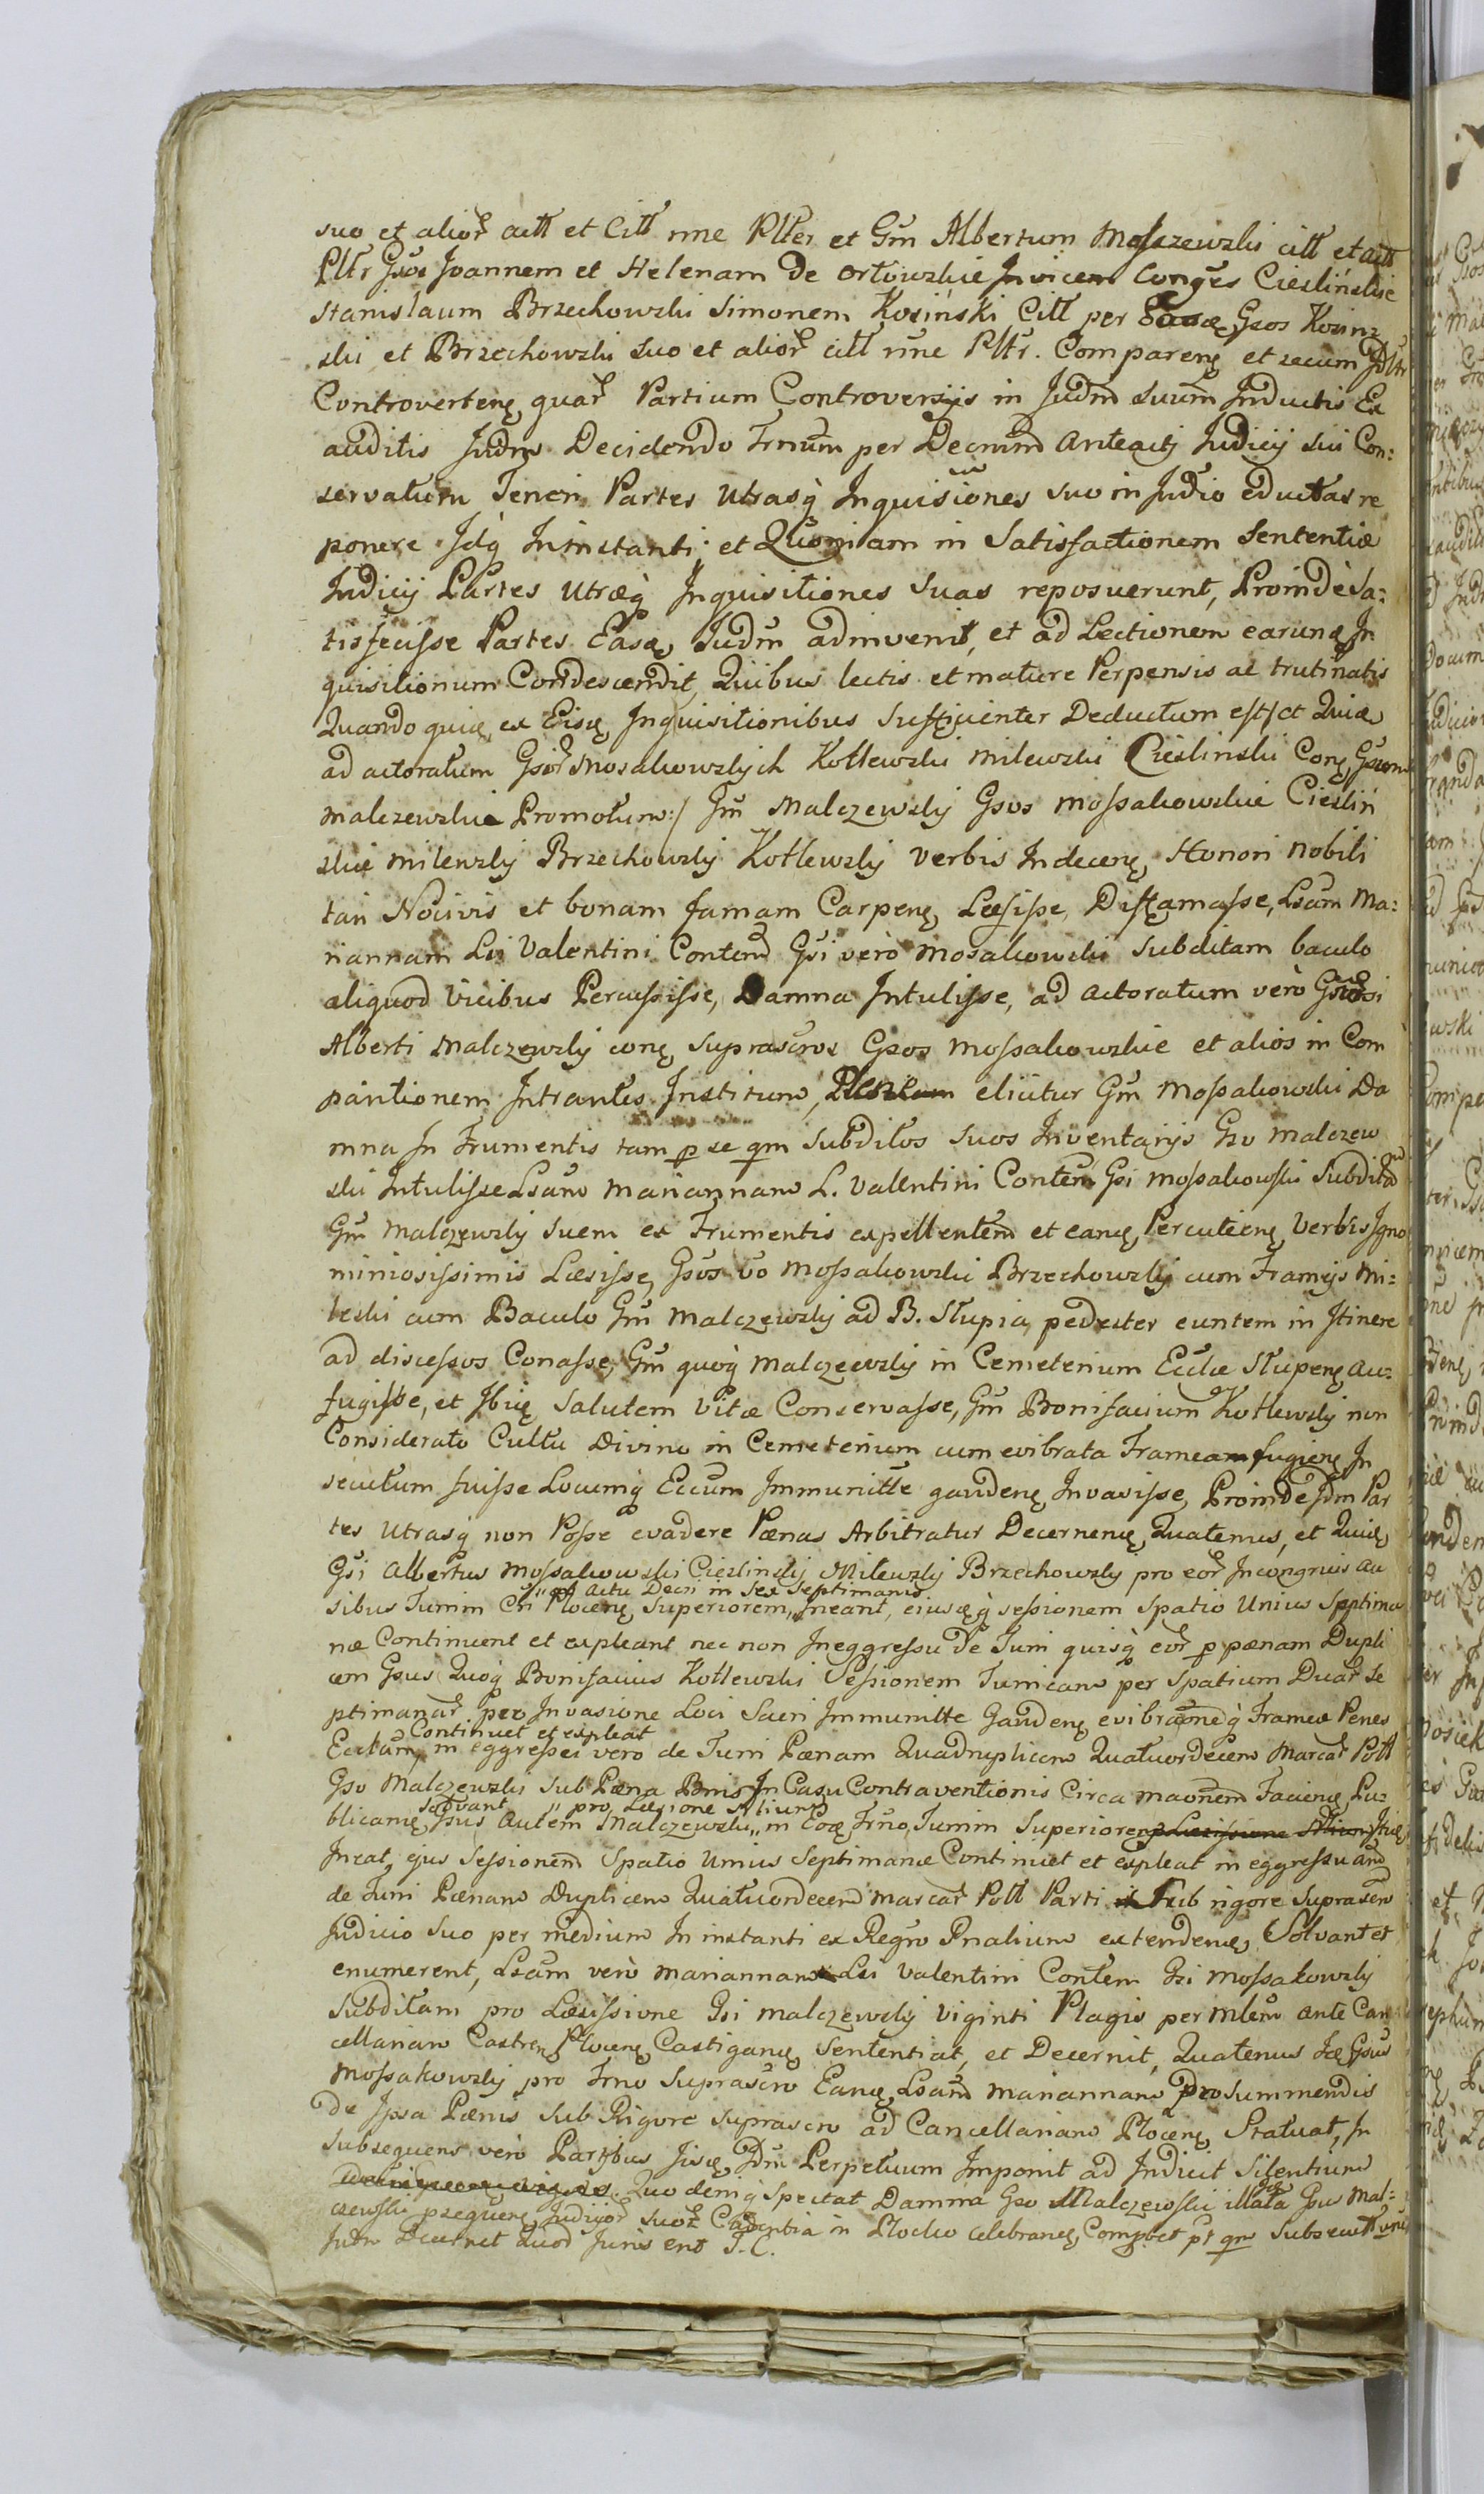 suo et alior act et Citt nne Plter et Gm Albertum Moszewski citt et act
Pltr Gsos Joannem et Helenam de Orłowskie Invicem Conges Ciesliń́skie
Stanislaum Brzechowski Simonem Kosiński Citt per Gsos Kosinz
ski et Brzechowski suo et alior citt nne Pltr. Comparenę et secum Pltr
Controvertenę quar Partium Controversijs in Judm Suum Inductis Ex
auditis Judm Decidendo Trnum per Decrum Anteacti Judicij sui Con:
servatum Teneri Partes Utrasq Inquisitiones suo in Judio eductas re
ponere Idq Ininstanti et Quoniam in Satisfactionem Sententiæ
Judicij Partes Utræq Inquisitiones Suas reposuerunt, Proinde Sa:
tisfecisse Partes Easę Judm adinvenit, et ad Lectionem earunę In
quisitionum Condescendit, Quibus lectis et mature Perpensis ac trutinatis
Quando quię ex Eisę Inquisitionibus Sufficienter Deductum est /ct Quię
ad actoratum Gsior Mosakowskych Kotlewski Milewski Cieslinski Conę Gsum
Malczewskie Promotum:/ Gm Malczewsky Gsos Mossakowskie Cieslin
skie Milewsky Brzechowsky Kotlewsky verbis Indecenę Honori nobili
tari Nocivis et bonam famam Carpenę Læsisse, Diffamasse, Lsam Ma:
riannam Lsi Valentini Conten Gsi vero Mosakowski subditam baculo
aliquod Vicibus Percussisse, Damna Intulisse, ad actoratum vero Gsi
Alberti Malczewsky conę suprascros Gsos Mossakowskie et alios in Com
paritionem Intrantes Institum, elicitur Gm Mossakowski Da
mna In Frumentis tam p se qm Subditos suos Inventarijs Gso Malczew
ski Intulisse Lsam Mariannam L. Valentini Conten Gsi Mossakowski Subditam
Gm Malczewsky Suem ex Frumentis expellentem et eanę Percutienę Verbis Igno
miniosissimis Læsisse, Gsos vo Mossakowski Brzechowsky cum Frameis Mi:
leski cum Baculo Gm Malczewsky ad B. Słupia pedester euntem in Itinere
ad discessos Conasse, Gm quoq Malczewsky in Cemeterium Ecclæ Słupenę au:
fugisse, et Ibię Salutem Vitæ Conservasse, Gm Bonifacium Kotlewsky non
Considerato Cultu Divino in Cemeterium cum evibrata Frameam fugienę In
secutum fuisse Locumq Eccum Immunitte gaudenę Invasisse, Proinde Jdm Par
tes Utrasq non Posse evadere Pœnas Arbitratur Decernenę Quatenus, et Quię
Gsi Albertus Mossakowski Cieslinsky Milewsky Brzechowsky pro eor Incongruis au
„ab actu Decri in Sex Septimanis
sibus Turrim Cri Plocenę Superiorem, Ineant, eiusęq sessionem Spatio Unius Septima
næ Continuent et expleant nec non Ineggressu de Turri quisq eor p pænam Dupli
cem Gsus Quoq Bonifacius Kotlewski Sessionem Turricam per Spatium Duar Se
ptimanar pro Invasione Loci Sacri Immunitte Gaudenę evibraoneq Frameæ Penes
Continuet et expleat
Ecclam, in eggressu vero de Turri Pœnam Quadruplicem Quatuordecem Marcar Poll
Gso Malczewski sub Pœna Bnis In Casu Contraventionis Circa maonem Facienę Pu:
solvant „pro Læsione
blicanę Gsus Autem Malczewski„ in Eoę Trno Turrim Superiorem
Ineat, ejus Sessionem Spatio Unius Septimanæ Continuet et expleat in eggressu
de Turri Pœnam Duplicem Quatuordecem Marcar Poll Parti Sub rigore Suprascro
Judicio suo per medium In instanti ex Regro Pnalium extendenę Solvant et
enumerent, Lsam vero Mariannam Lsi Valentini Conten Gsi Mossakowsky
Subditam pro Læsissione Gsi Malczewsky Viginti Plagis per Mlem ante Can
cellariam Castren Plocenę Castiganę Sententiat, et Decernit, Quatenus Gsus
Mossakowsky pro Trno Suprascro Eanę Lsam Mariannam pro summendis
de Ipsa Pœnis Sub Rigore Suprascro ad Cancellariam Plocenę Statuat, In
subsequens vero Partibus Iisę Jdm Perpetuum Imponit ad Indicit Silentium
Quo deniq Spectat Damna Gso Malczewski illata Gsus Mal:
czewski psequenę Judicior suor Cadentia in Plocko celebranę Compret
Judm Decernet Quod Juris erit J.C.